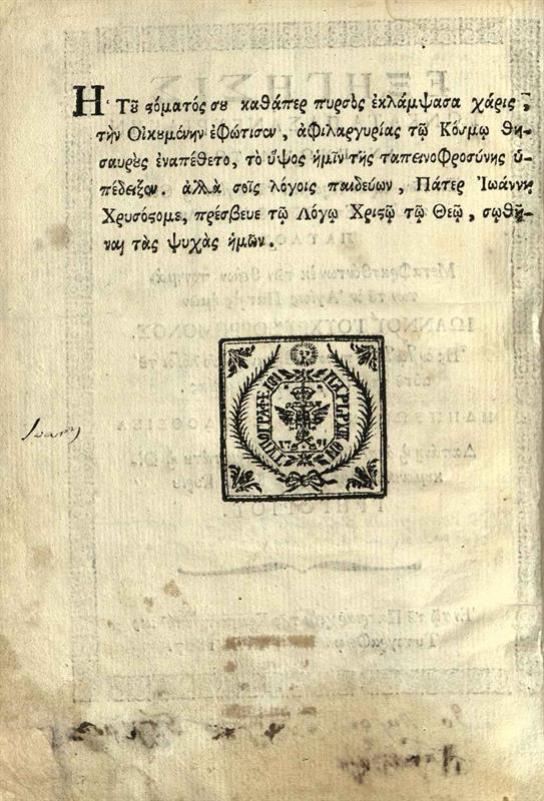 Η Τȣ͂ ϛόματός σȣ καθάπερ πυρσὸς ἐκλάμψασα χάρις,
τὴν Οἰκȣμένην ἐφώτισεν, ἀφιλαργυρίας τῷ Κόσμῳ θη-
σαυρȣ̀ς ἐναπέθετο, τὸ ὕψος ἡμῖν τῆς ταπεινοφροσύνης ὑ-
πέδειξεν. ἀλλὰ σοῖς λόγοις παιδεύων, Πάτερ Ἰωάννη
Χρυσόϛομε, πρέσβευε τῷ Λόγῳ Χριϛῷ τῷ Θεῷ, σωθῆ-
ναι τὰς ψυχὰς ἡμῶν.